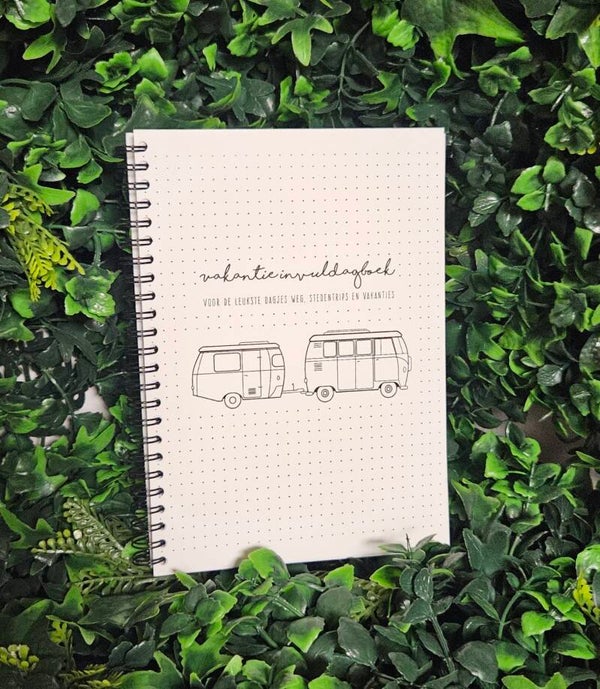 vakantie invuldagboek
VOOR DE LEUKSTE DAGJES WEG, STEDENTRIPS EN VAKANTIES